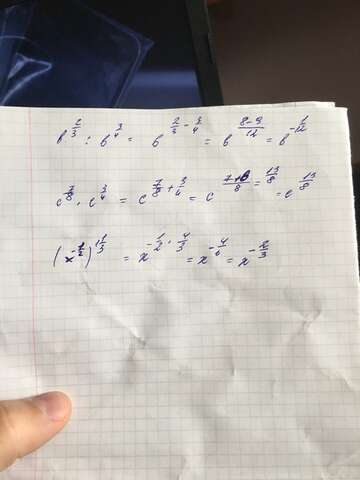 b^{2/3} : b^{3/4} = b^{2/3 - 3/4} = b^{(8-9)/12} = b^{-1/12}
c^{7/8} · c^{3/4} = c^{7/8 + 3/4} = c^{(7+6)/8 = 13/8} = c^{13/8}
(x^{-1/2})^{1 1/3} = x^{-1/2 · 4/3} = x^{-4/6} = x^{-2/3}